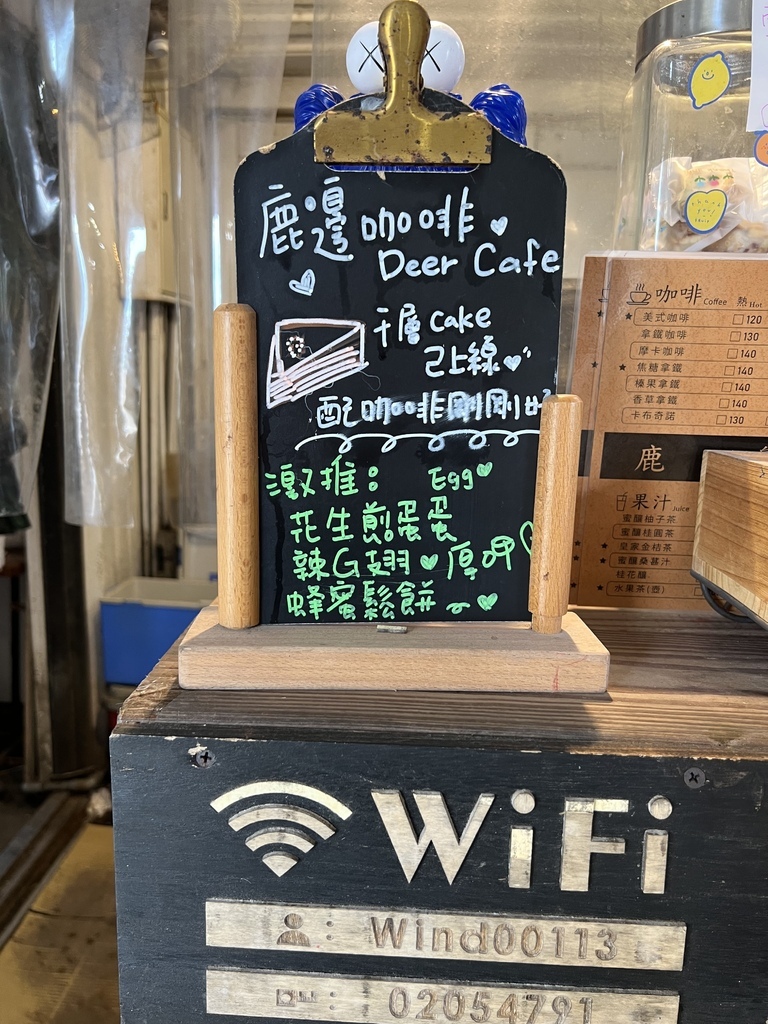 鹿邊咖啡
Deer Cafe
千層 cake
已上線
配咖啡剛剛好
激推： Egg
花生煎蛋蛋
辣G翅 厚呷
蜂蜜鬆餅～
咖啡 Coffee 熱 Hot
美式咖啡 120
拿鐵咖啡 130
摩卡咖啡 140
焦糖拿鐵 140
榛果拿鐵 140
香草拿鐵 140
卡布奇諾 130
鹿
果汁 Juice
蜜釀柚子茶
蜜釀桂圓茶
皇家金桔茶
蜜釀桑葚汁
桂花釀
水果茶(壺)
WiFi
: Wind00113
: 02054791